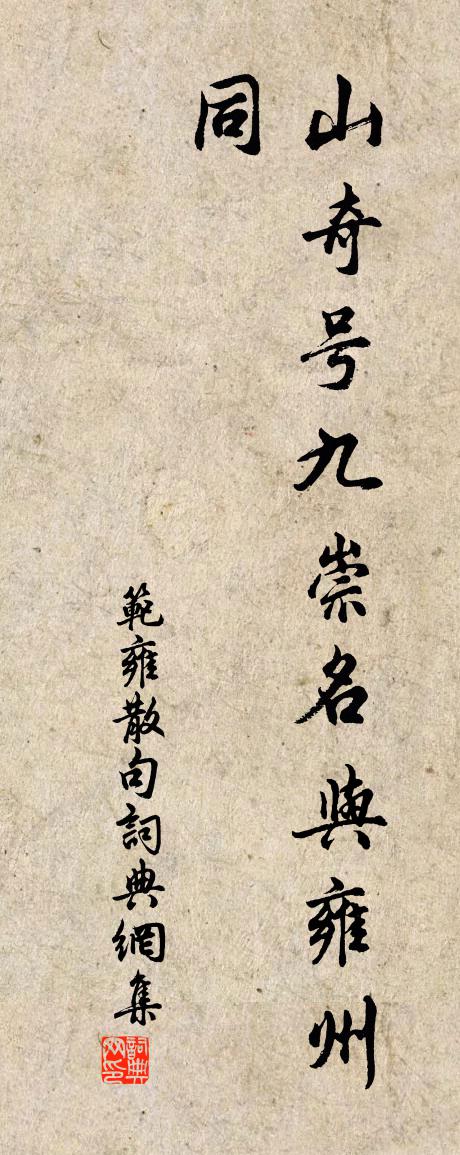 山奇号九崇名與雍州
同
範雍散句詞典網集
詞典
网印